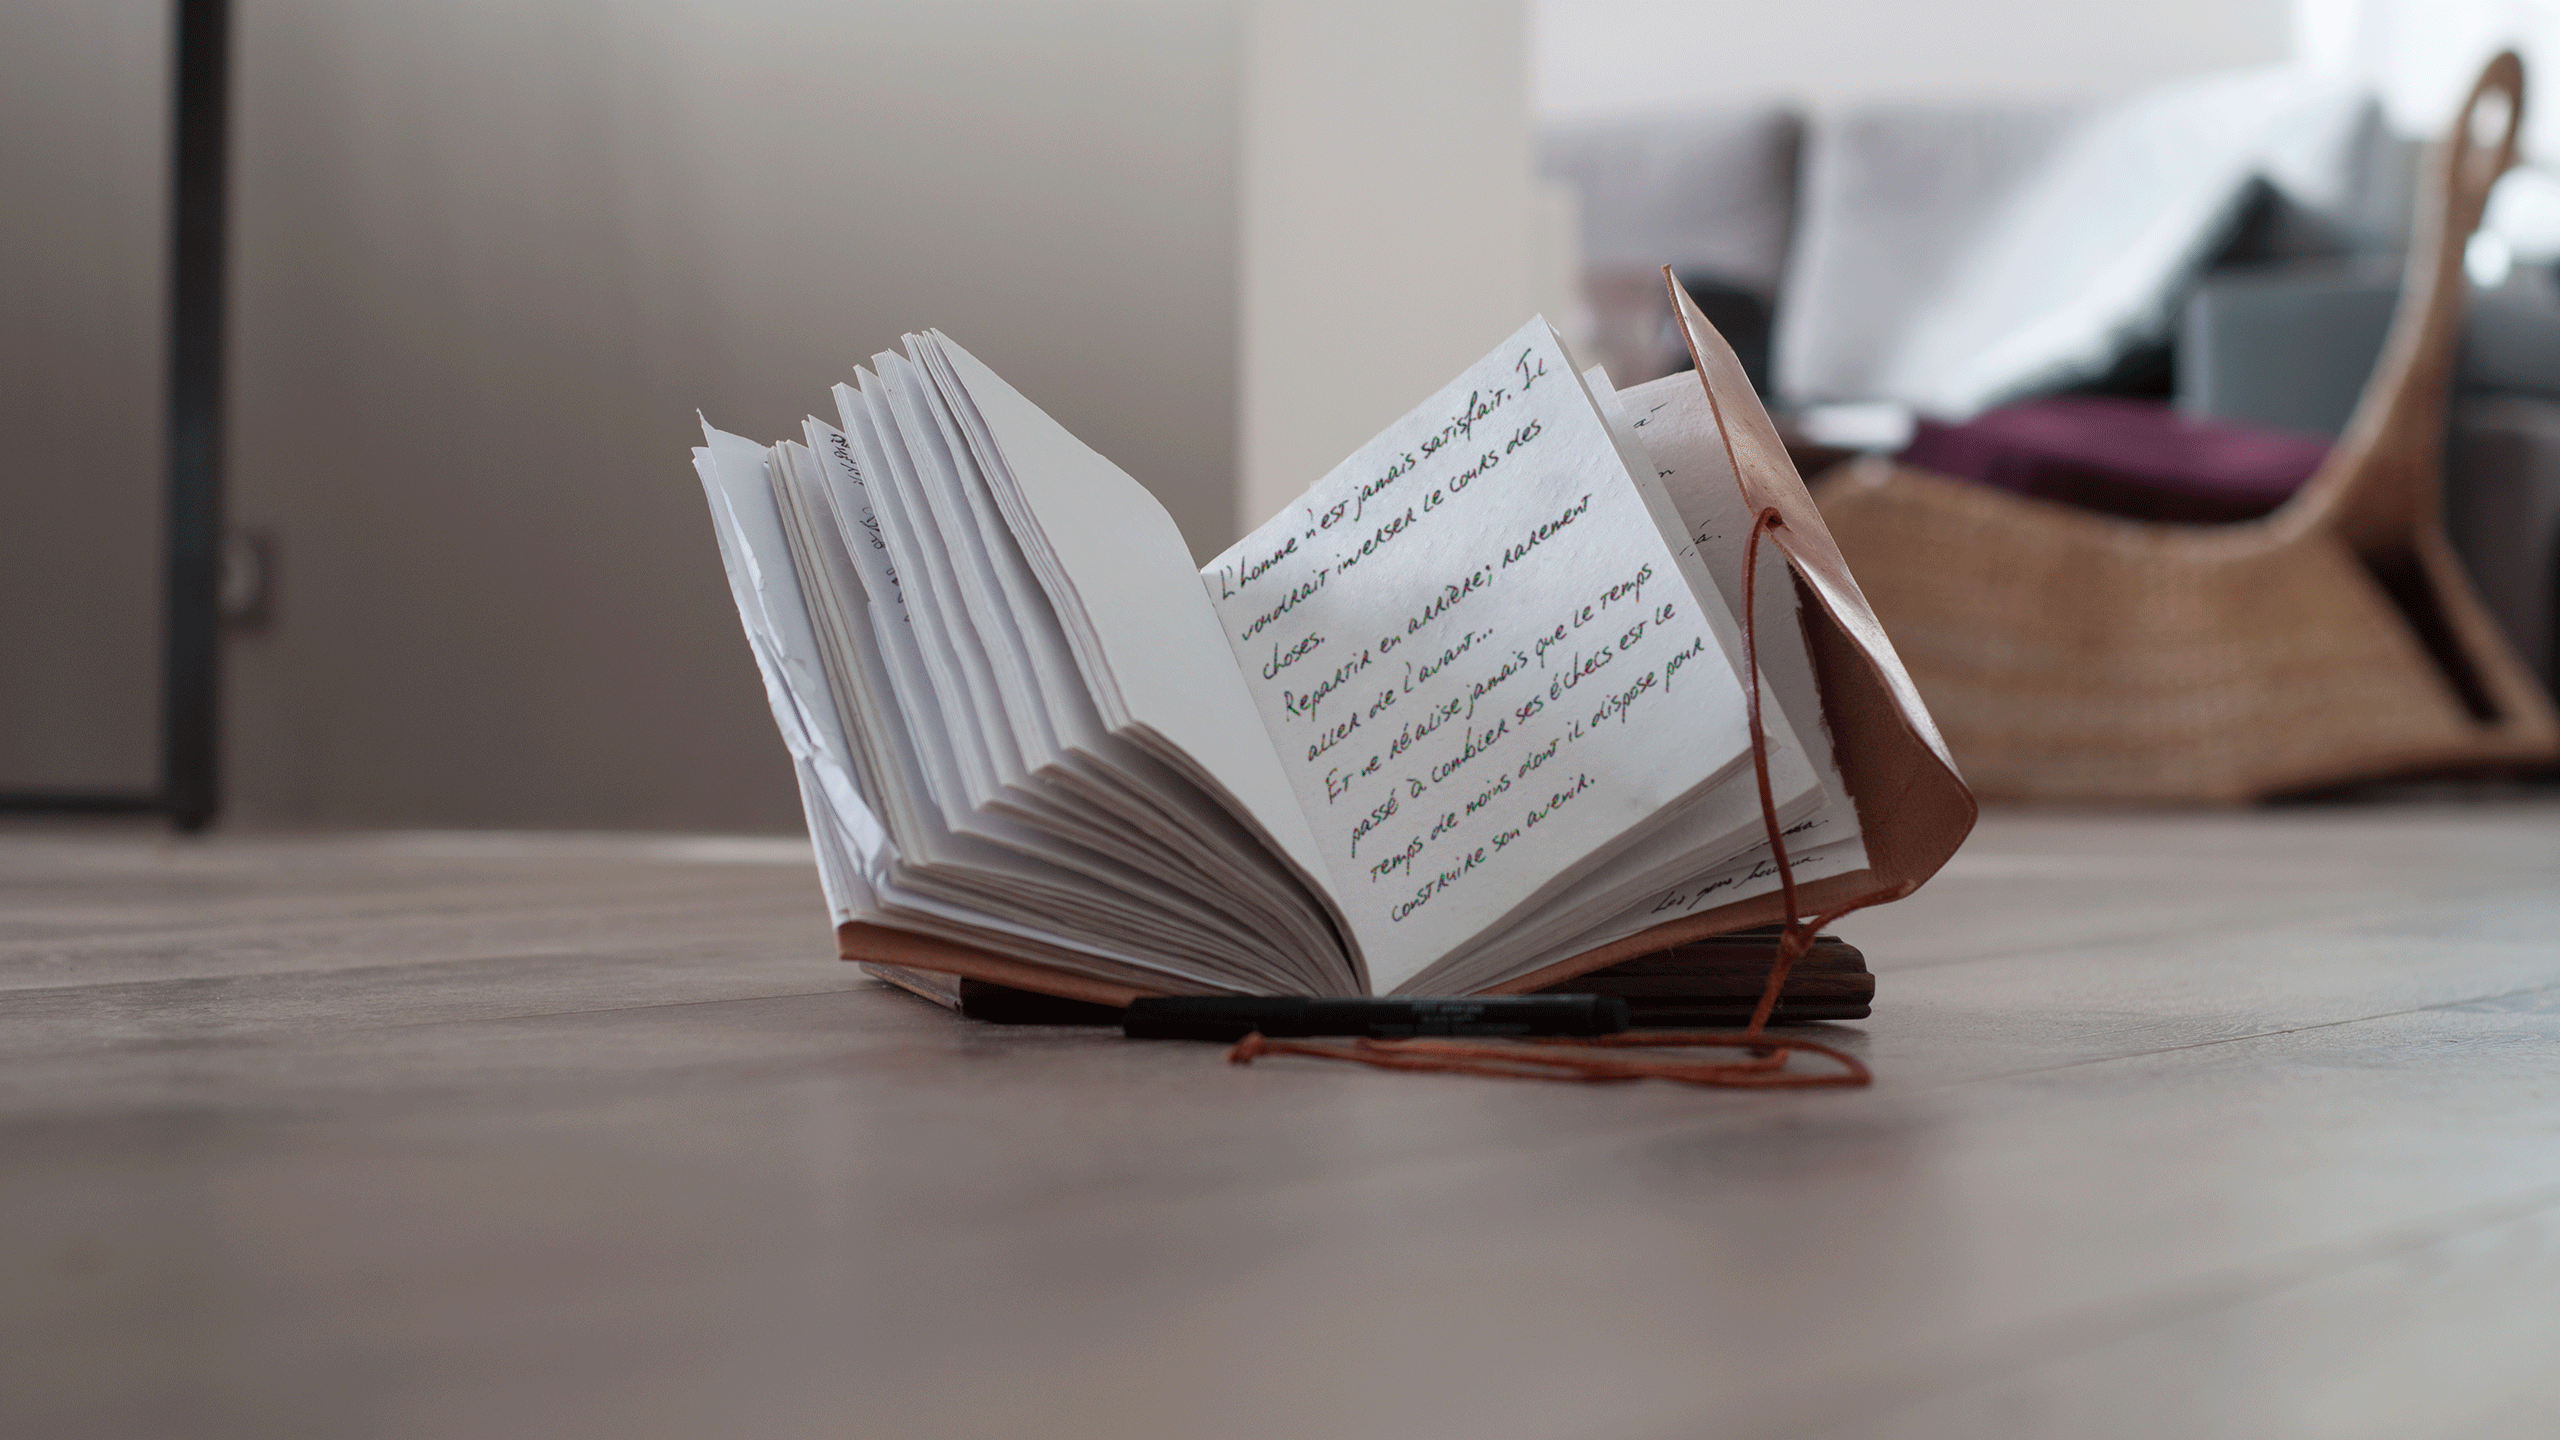 L'homme n'est jamais satisfait. Il
voudrait inverser le cours des
choses.
Repartir en arrière; rarement
aller de l'avant...
Et ne réalise jamais que le temps
passé à combler ses échecs est le
temps de moins dont il dispose pour
construire son avenir.
Les gens